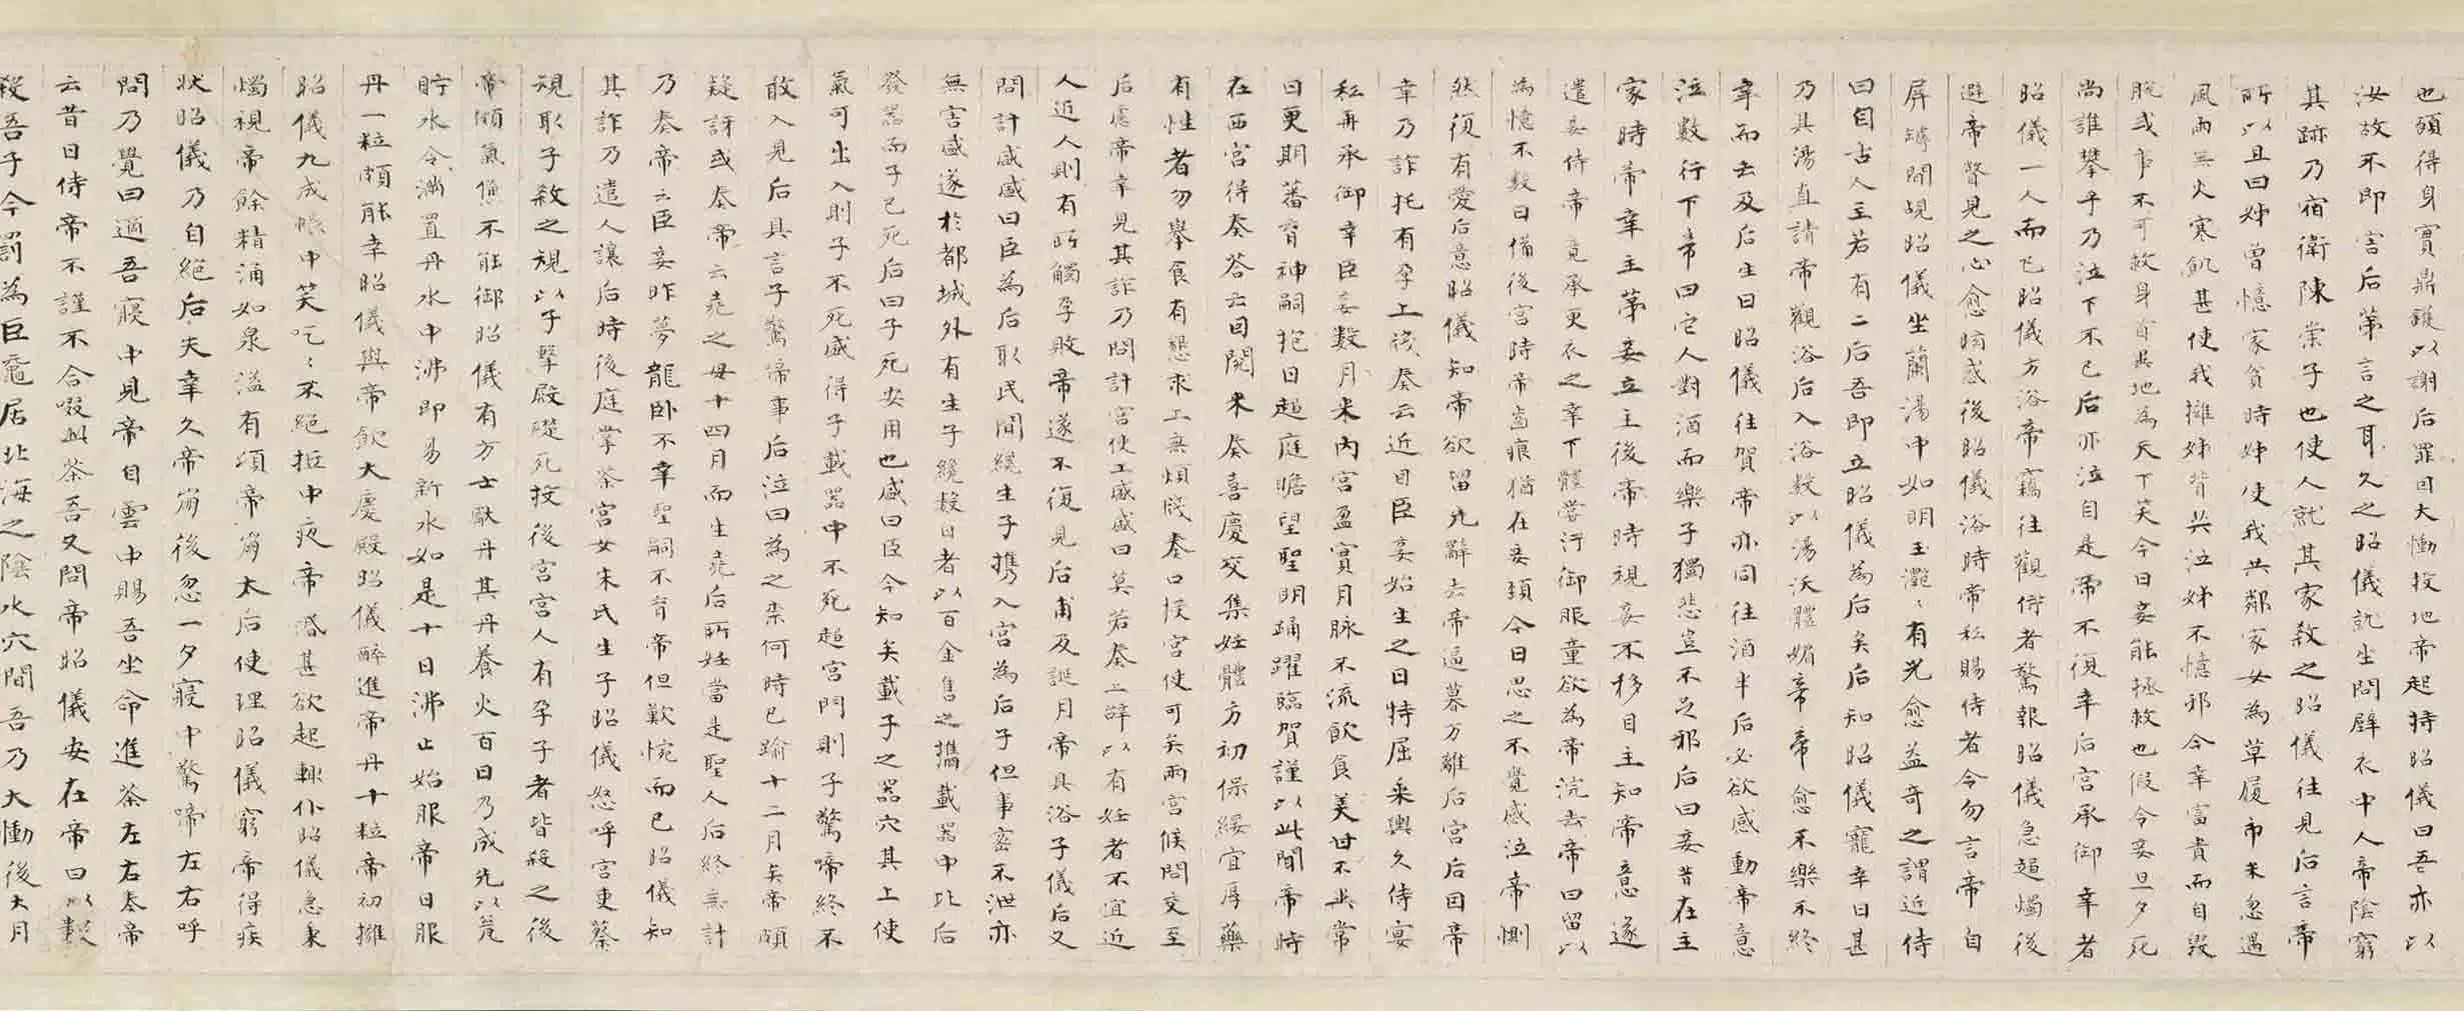 也願得身實鼎鑊以謝后罪因大慟投地帝起持昭儀曰吾亦以
汝故不即害后第言之耳久之昭儀就坐問壁衣中人帝陰窮
其跡乃宿衛陳崇子也使人就其家殺之昭儀往見后言帝
所以且曰姊曾憶家貧時姊使我共鄰家女為草履市米忽遇
風雨無火寒飢甚使我擁姊背共泣姊不憶邪今幸富貴而自毀
脫或事不可救身首異地為天下笑今日妾能拯救也假令妾旦夕死
尚誰攀乎乃泣下不已后亦泣自是帝不復幸后宮承御幸者
昭儀一人而已昭儀方浴帝竊往觀侍者驚報昭儀急趨燭後
避帝瞥見之心愈眩惑後昭儀浴時帝私賜侍者令勿言帝自
屏罅間覘昭儀坐蘭湯中如明玉灩〻有光愈益奇之謂近侍
曰自古人主若有二后吾即立昭儀為后矣后知昭儀寵幸日甚
乃具湯直請帝觀浴后入浴數以湯沃體媚帝帝愈不樂不終
幸而去及后生日昭儀往賀帝亦同往酒半后必欲感動帝意
泣數行下帝曰它人對酒而樂子獨悲豈不足邪后曰妾昔在主
家時帝幸主第妾立主後帝時視妾不移目主知帝意遂
遣妾侍帝竟承更衣之幸下體嘗汙御服童欲為帝浣去帝曰留以
為憶不數日備後宮時帝齒痕猶在妾頸今日思之不覺感泣帝惻
然復有愛后意昭儀知帝欲留先辭去帝逼暮方離后宮后因帝
幸乃詐托有孕上牋奏云近因臣妾始生之日特屈乘輿久侍宴
私再承御幸臣妾數月來內宮盈實月脉不流飲食美甘不異常
日更期蕃育神嗣抱日趨庭瞻望聖明踊躍臨賀謹以此聞帝時
在西宮得奏答云因閱來奏喜慶交集妊體方初保綏宜厚藥
有性者勿舉食有懇求上無煩牋奏口授宮使可矣兩宮候問交至
后慮帝幸見其詐乃問計宮使王盛盛曰莫若奏上辭以有妊者不宜近
人近人則有所觸孕敗帝遂不復見后甫及誕月帝具浴子儀后又
問計盛盛曰臣為后取民間纔生子携入宮為后子但事密不泄亦
無害盛遂於都城外有生子纔數日者以百金售之攜載器中比后
發器而子已死后曰子死安用也盛曰臣今知矣載子之器穴其上使
氣可出入則子不死盛得子載器中不死趨宮門則子驚啼終不
敢入見后具言子驚啼事后泣曰為之柰何時已踰十二月矣帝頗
疑訝或奏帝云堯之母十四月而生堯后所妊當是聖人后終無計
乃奏帝云臣妾昨夢龍臥不幸聖嗣不育帝但歎惋而已昭儀知
其詐乃遣人讓后時後庭掌茶宮女朱氏生子昭儀怒呼宮吏蔡
規取子殺之規以子擊殿礎死投後宮宮人有孕子者皆殺之後
帝頗氣憊不能御昭儀有方士獻丹其丹養火百日乃成先以甕
貯水令滿置丹水中沸即易新水如是十日沸止始服帝日服
丹一粒頗能幸昭儀與帝飲大慶殿昭儀醉進帝丹十粒帝初擁
昭儀九成帳中笑吃〻不絕抵中夜帝昏甚欲起輒仆昭儀急秉
燭視帝餘精涌如泉溢有頃帝崩太后使理昭儀窮帝得疾
狀昭儀乃自絕后失幸久帝崩後忽一夕寢中驚啼左右呼
問乃覺曰適吾寢中見帝自雲中賜吾坐命進茶左右奏帝
云昔日侍帝不謹不合啜此茶吾又問帝昭儀安在帝曰以數
殺吾子今罰為巨黿居北海之陰水穴間吾乃大慟後大月